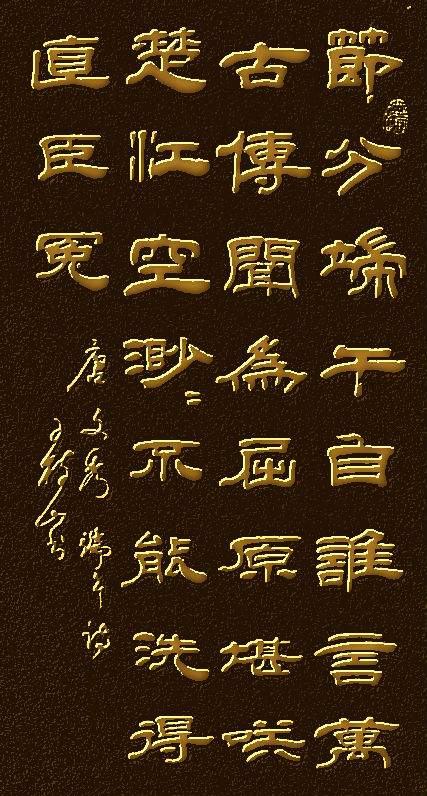 節分端午自誰言萬
古傳聞為屈原堪咲
楚江空渺〻不能洗得
直臣冤
唐文秀端午詩